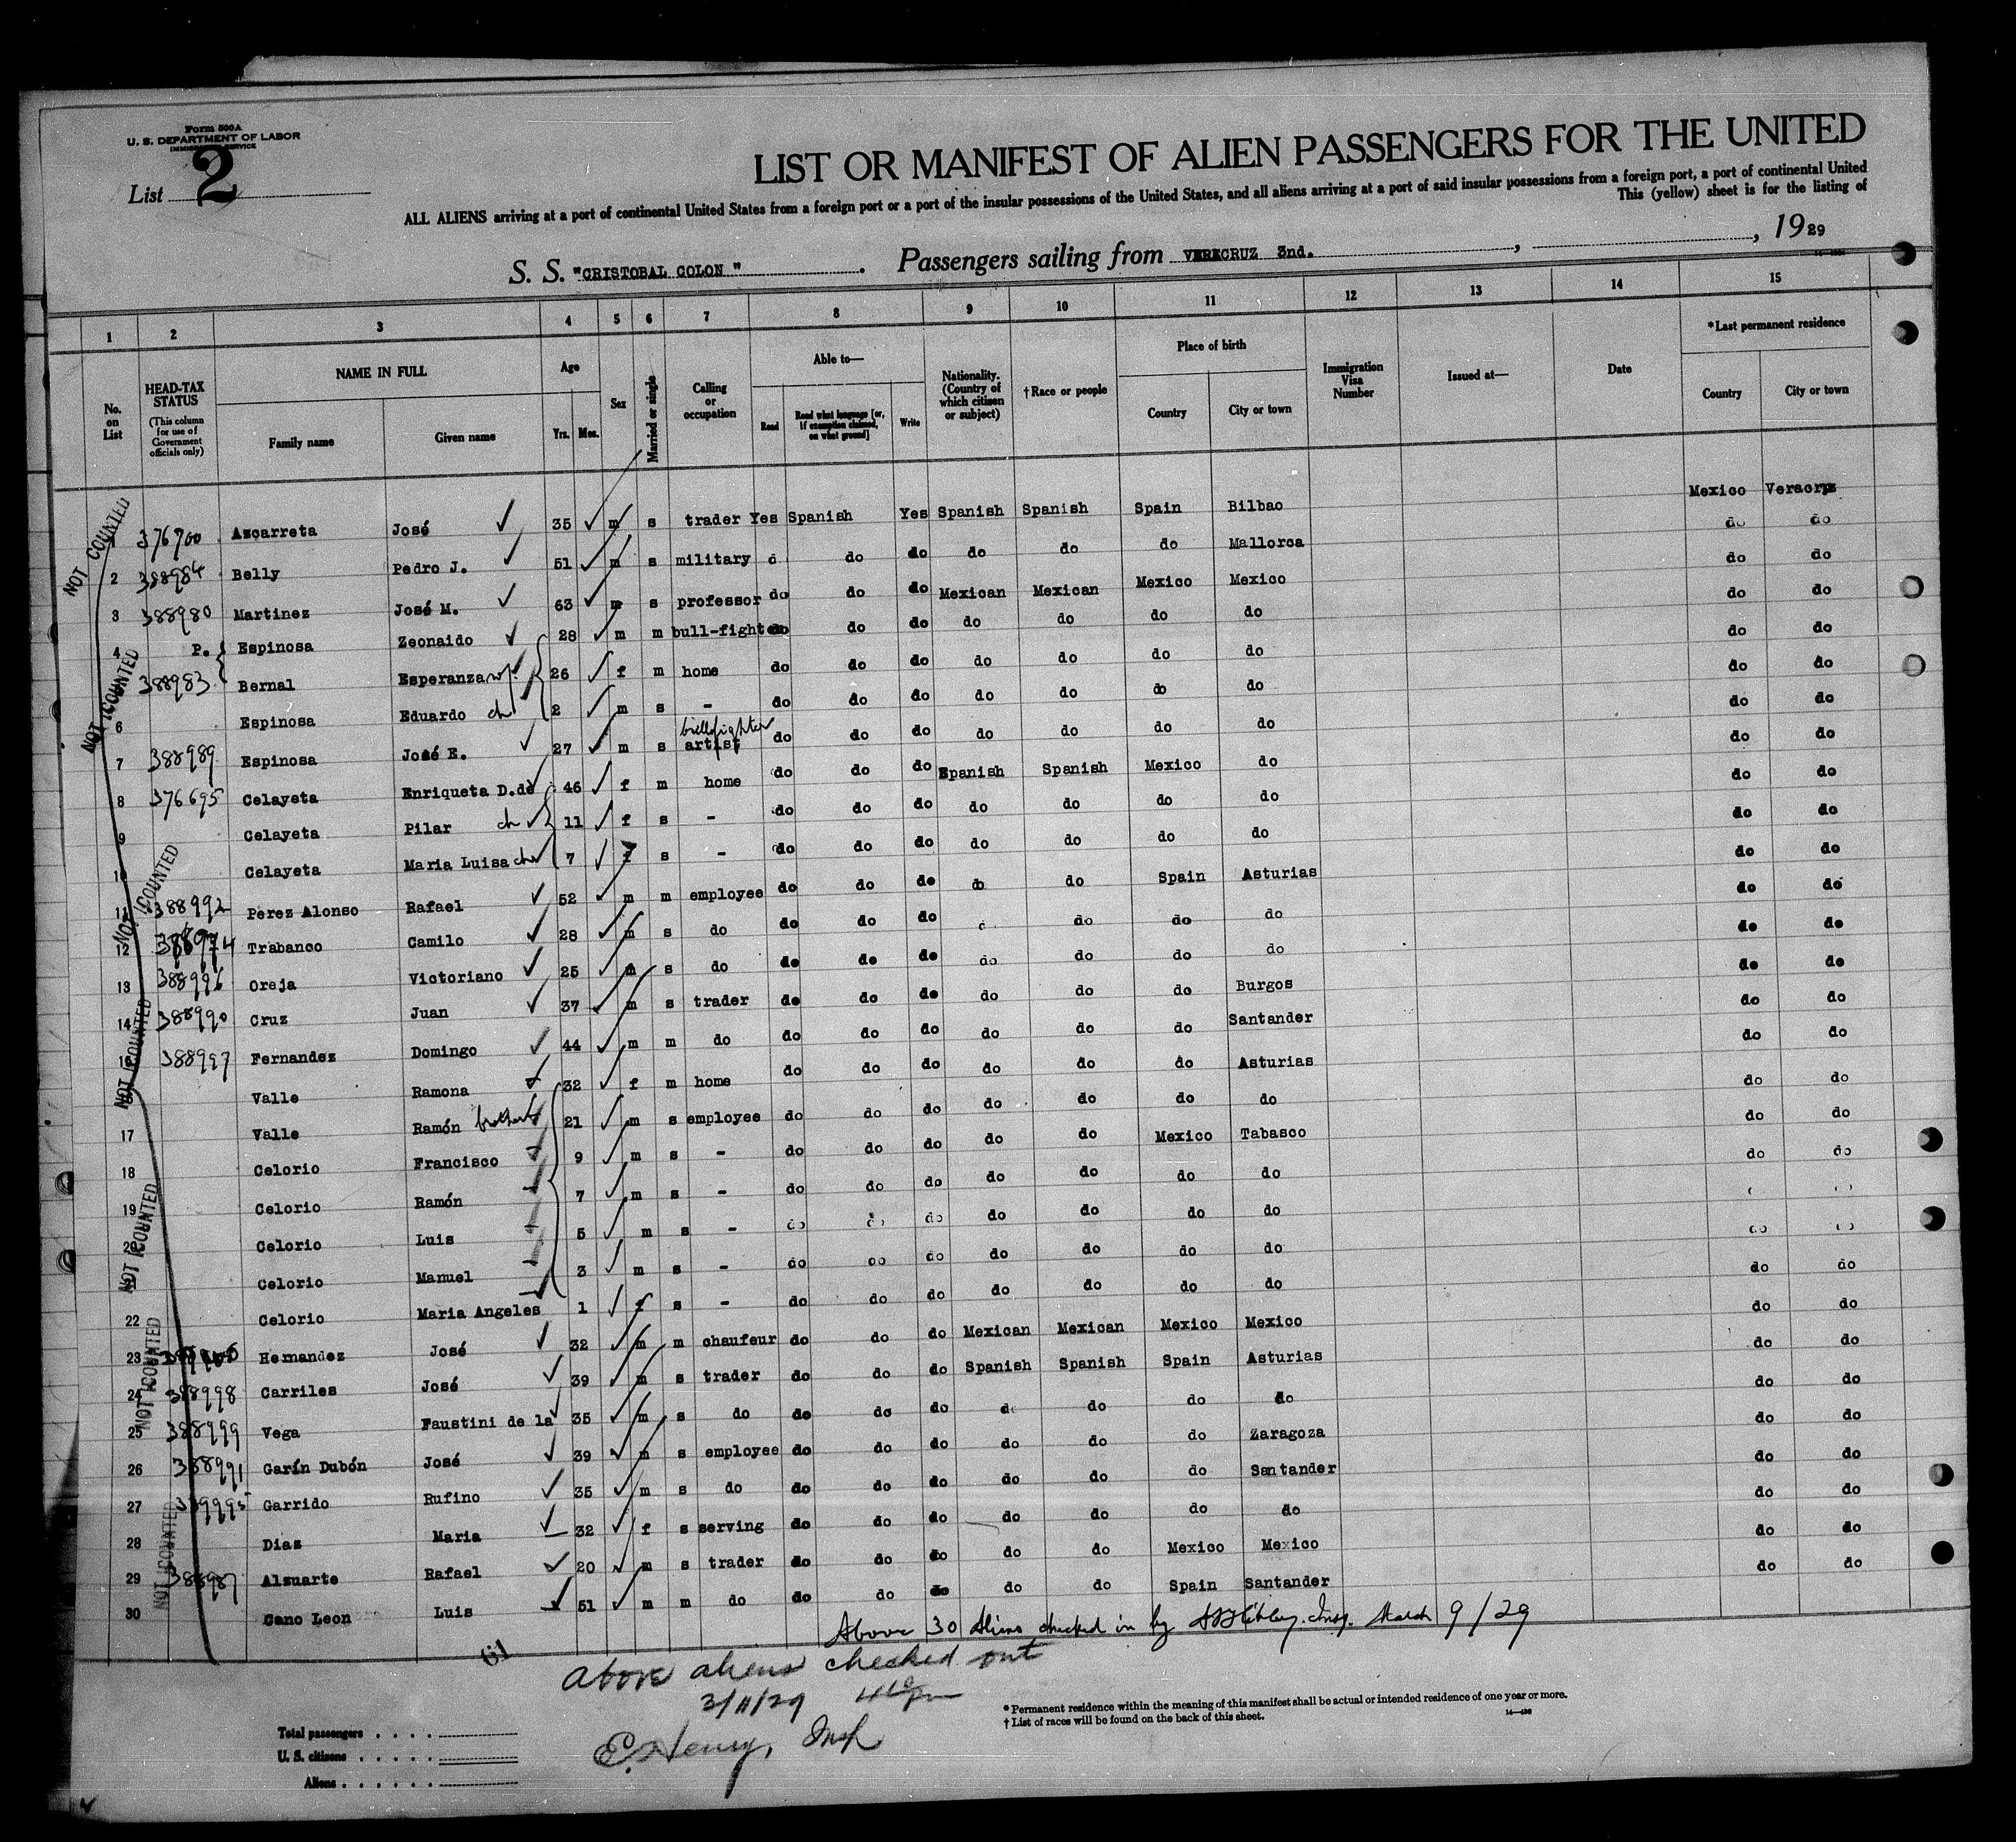 Form 500A
U. S. DEPARTMENT OF LABOR
IMMIGRATION SERVICE
List 2
LIST OR MANIFEST OF ALIEN PASSENGERS FOR THE UNITED
ALL ALIENS arriving at a port of continental United States from a foreign port or a port of the insular possessions of the United States, and all aliens arriving at a port of said insular possessions from a foreign port, a port of continental United
This (yellow) sheet is for the listing of
S. S. "CRISTOBAL COLON" . Passengers sailing from VERACRUZ 3nd. , , 1929
1 2 3 4 5 6 7 8 9 10 11 12 13 14 15
No. on List
HEAD-TAX STATUS (This column for use of Government officials only)
NAME IN FULL Family name Given name
Age Yrs. Mos.
Sex
Married or single
Calling or occupation
Able to— Read Read what language [or, if exemption claimed, on what ground] Write
Nationality. (Country of which citizen or subject)
†Race or people
Place of birth Country City or town
Immigration Visa Number
Issued at—
Date
*Last permanent residence Country City or town
1 376700 Ascarreta José 35 m s trader Yes Spanish Yes Spanish Spanish Spain Bilbao Mexico Veracruz
2 388984 Belly Pedro J. 51 m s military do do do do do Mallorca do do
3 388980 Martinez José M. 63 m s professor do do do Mexican Mexican Mexico Mexico do do
4 P. Espinosa Zeonaido 28 m m bull-fighter do do do do do do do do do
388983 Bernal Esperanza wf. 26 f m home do do do do do do do do do
6 Espinosa Eduardo ch 2 m s - do do do do do do do do do
7 388989 Espinosa José E. 27 m s bullfighter artist do do do do do do do do do
8 376695 Celayeta Enriqueta D.de 46 f m home do do do Spanish Spanish Mexico do do do
9 Celayeta Pilar ch 11 f s - do do do do do do do do do
10 Celayeta Maria Luisa ch 7 f s - do do do do do do do do do
11 388992 Perez Alonso Rafael 52 m m employee do do do do do Spain Asturias do do
12 388974 Trabanco Camilo 28 m s do do do do do do do do do
13 388996 Oreja Victoriano 25 m s do do do do do do do do do do
14 388990 Cruz Juan 37 m s trader do do do do do do Burgos do do
15 388997 Fernandez Domingo 44 m m do do do do do do do Santander do do
Valle Ramona 32 f m home do do do do do do Asturias do do
17 Valle Ramón brother 21 m s employee do do do do do do do do do
18 Celorio Francisco 9 m s - do do do do do Mexico Tabasco do do
19 Celorio Ramón 7 m s - do do do do do do do do do
20 Celorio Luis 5 m s - do do do do do do do
21 Celorio Manuel 3 m s - do do do do do do do do do
22 Celorio Maria Angeles 1 f s - do do do do do do do do do
23 Hernandez José 32 m m chaufeur do do do Mexican Mexican Mexico Mexico do do
24 388998 Carriles José 39 m s trader do do do Spanish Spanish Spain Asturias do do
25 388999 Vega Faustini de la 35 m s do do do do do do do do do do
26 388991 Garín Dubón José 39 m s employee do do do do do do Zaragoza do do
27 389995 Garrido Rufino 35 m s do do do do do do do Santander do do
28 Diaz Maria 32 f s serving do do do do do do do do do
29 388987 Alzuarte Rafael 20 m s trader do do do do do Mexico Mexico do do
30 Cano Leon Luis 51 m m do do do do do do Spain Santander do do
NOT COUNTED
NOT COUNTED
NOT COUNTED
NOT COUNTED
NOT COUNTED
NOT COUNTED
NOT COUNTED
Above 30 Aliens checked in by Insp. March 9/29
above aliens checked out
3/11/29 4 pm
E. Henry, Insp
*Permanent residence within the meaning of this manifest shall be actual or intended residence of one year or more.
†List of races will be found on the back of this sheet.
Total passengers . . . .
U. S. citizens . . . . .
Aliens . . . . . .